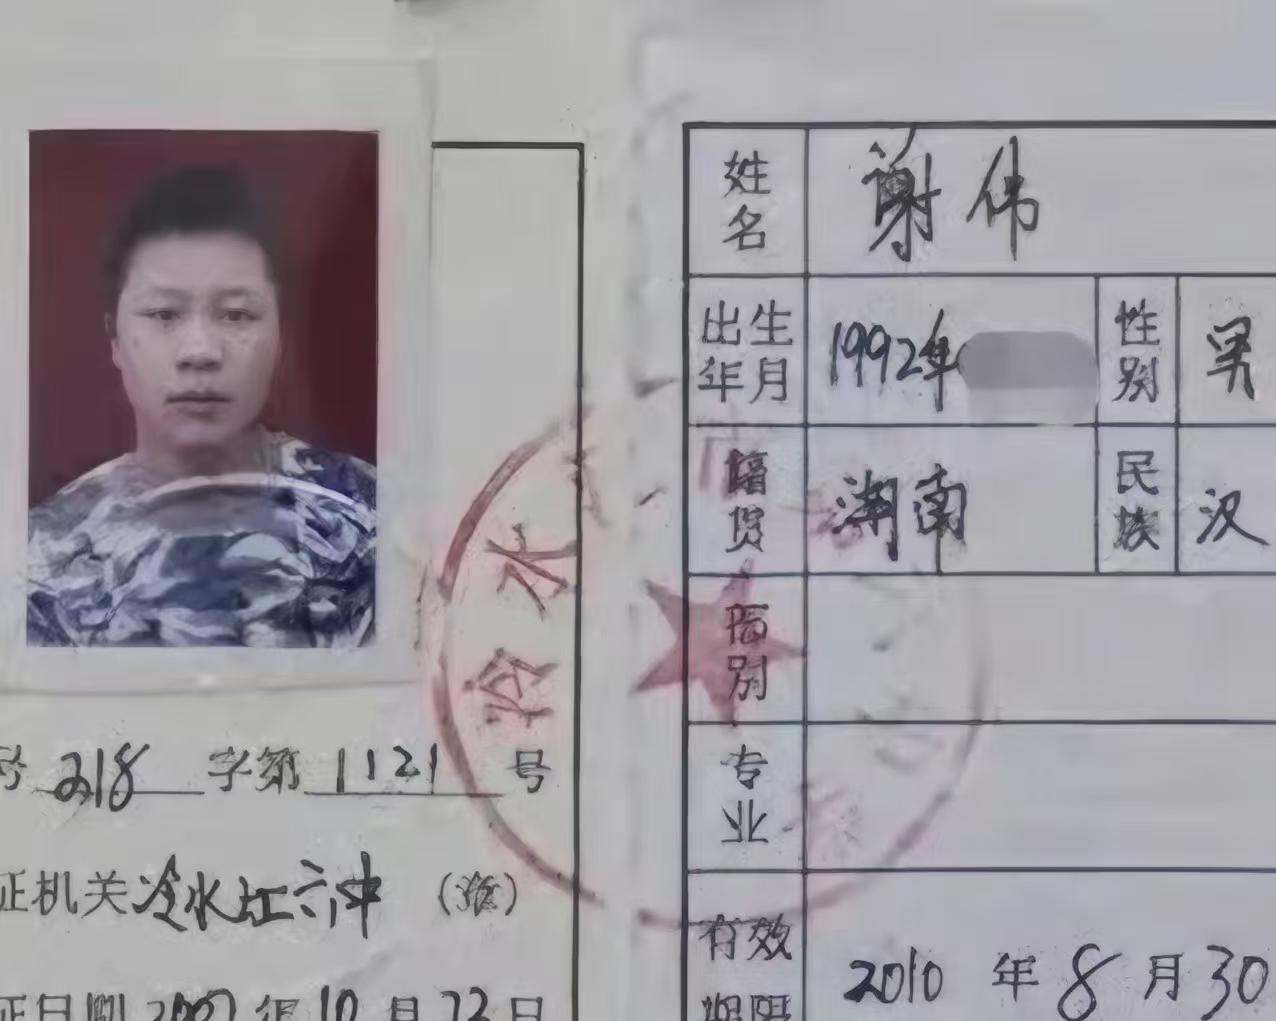 号 218 字第 1121 号
证机关 冷水江六中 (章)
证日期 2007 年 10 月 日
冷水
姓名 谢伟
出生年月 1992年 性别 男
籍贯 湖南 民族 汉
别
专业
有效期限 2010 年 8 月 30